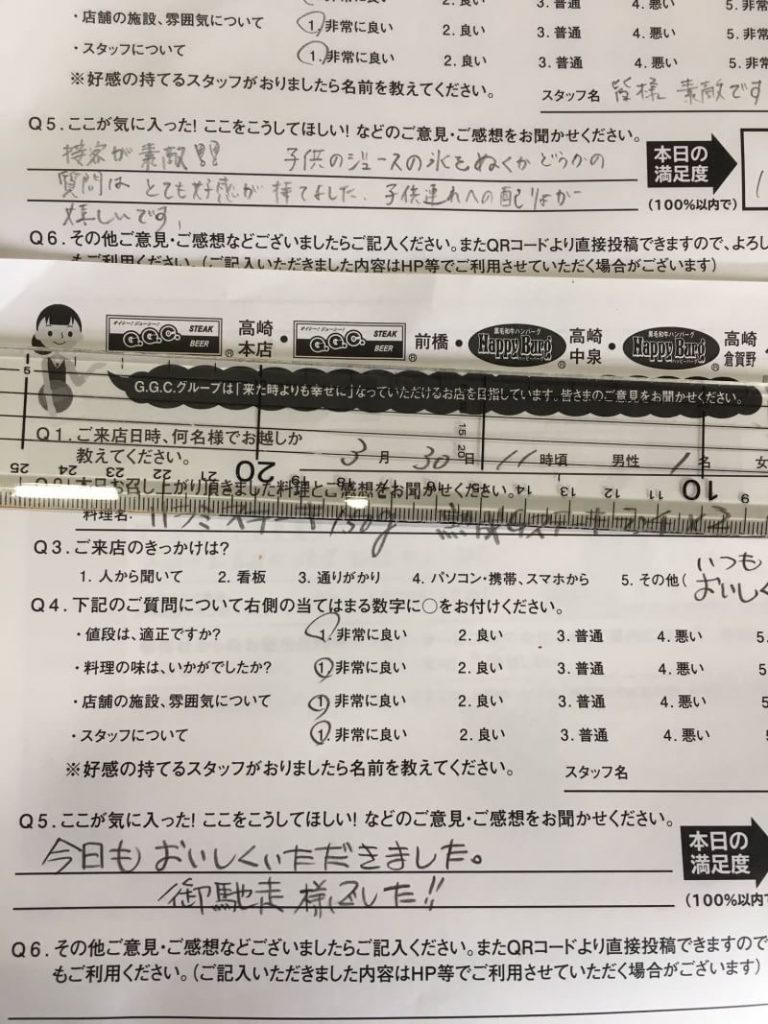 ・店舗の施設、雰囲気について 1. 非常に良い 2. 良い 3. 普通 4. 悪い 5. 非常
・スタッフについて 1. 非常に良い 2. 良い 3. 普通 4. 悪い 5. 非常
※好感の持てるスタッフがおりましたら名前を教えてください。 スタッフ名 皆様 素敵です
Q5. ここが気に入った! ここをこうしてほしい! などのご意見・ご感想をお聞かせください。
接客が素敵!! 子供のジュースの氷をぬくかどうかの
質問は とても好感が持てました。子供連れへの配りょが
嬉しいです。
本日の
満足度
(100%以内で)
Q6. その他ご意見・ご感想などございましたらご記入ください。またQRコードより直接投稿できますので、よろし
もご利用ください。(ご記入いただきました内容はHP等でご利用させていただく場合がございます)
G.G.C. STEAK BEER 高崎本店・G.G.C. STEAK BEER 前橋・黒毛和牛ハンバーグ Happy Burg 高崎中泉・黒毛和牛ハンバーグ Happy Burg 高崎倉賀野
G.G.C.グループは「来た時よりも幸せに」なっていただけるお店を目指しています。皆さまのご意見をお聞かせください。
Q1. ご来店日時、何名様でお越しか
教えてください。 3月 30日 11時頃 男性 1名 女
25 24 23 22 21 20 14 13 12 11 10 9
本日お召し上がり頂きました料理とご感想をお聞かせください。
料理名: 150g
Q3. ご来店のきっかけは?
1. 人から聞いて 2. 看板 3. 通りがかり 4. パソコン・携帯、スマホから 5. その他( いつも
おいしく
Q4. 下記のご質問について右側の当てはまる数字に○をお付けください。
・値段は、適正ですか? 1. 非常に良い 2. 良い 3. 普通 4. 悪い 5.
・料理の味は、いかがでしたか? 1. 非常に良い 2. 良い 3. 普通 4. 悪い 5.
・店舗の施設、雰囲気について 1. 非常に良い 2. 良い 3. 普通 4. 悪い 5
・スタッフについて 1. 非常に良い 2. 良い 3. 普通 4. 悪い 5.
※好感の持てるスタッフがおりましたら名前を教えてください。 スタッフ名
Q5. ここが気に入った! ここをこうしてほしい! などのご意見・ご感想をお聞かせください。
今日もおいしくいただきました。
御馳走様でした!!
本日の
満足度
(100%以内
Q6. その他ご意見・ご感想などございましたらご記入ください。またQRコードより直接投稿できますので
もご利用ください。(ご記入いただきました内容はHP等でご利用させていただく場合がございます)